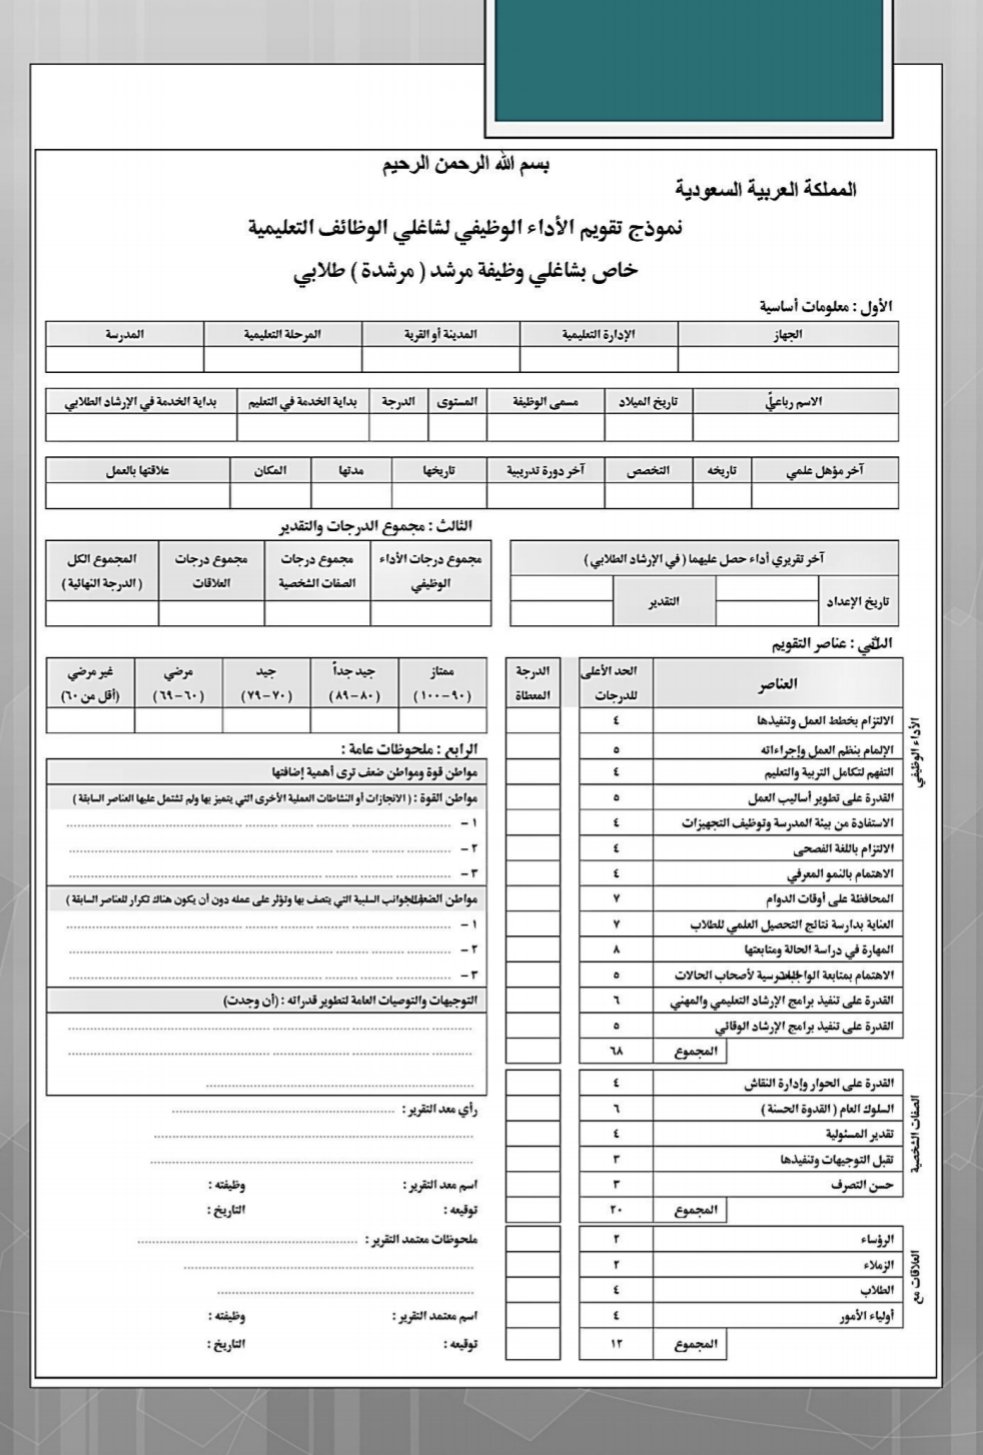 بسم الله الرحمن الرحيم
المملكة العربية السعودية
نموذج تقويم الأداء الوظيفي لشاغلي الوظائف التعليمية
خاص بشاغلي وظيفة مرشد ( مرشدة ) طلابي
الأول : معلومات أساسية
الجهاز الإدارة التعليمية المدينة أو القرية المرحلة التعليمية المدرسة
الاسم رباعيًّ تاريخ الميلاد مسمى الوظيفة المستوى الدرجة بداية الخدمة في التعليم بداية الخدمة في الإرشاد الطلابي
آخر مؤهل علمي تاريخه التخصص آخر دورة تدريبية تاريخها مدتها المكان علاقتها بالعمل
آخر تقريري أداء حصل عليهما ( في الإرشاد الطلابي )
تاريخ الإعداد التقدير
الثالث : مجموع الدرجات والتقدير
مجموع درجات الأداء الوظيفي مجموع درجات الصفات الشخصية مجموع درجات العلاقات المجموع الكل ( الدرجة النهائية )
الثاني : عناصر التقويم
العناصر الحد الأعلى للدرجات الدرجة المعطاة
الأداء الوظيفي
الالتزام بخطط العمل وتنفيذها ٤
الإلمام بنظم العمل وإجراءاته ٥
التفهم لتكامل التربية والتعليم ٤
القدرة على تطوير أساليب العمل ٥
الاستفادة من بيئة المدرسة وتوظيف التجهيزات ٤
الالتزام باللغة الفصحى ٤
الاهتمام بالنمو المعرفي ٤
المحافظة على أوقات الدوام ٧
العناية بدارسة نتائج التحصيل العلمي للطلاب ٧
المهارة في دراسة الحالة ومتابعتها ٨
الاهتمام بمتابعة لأصحاب الحالات ٥
القدرة على تنفيذ برامج الإرشاد التعليمي والمهني ٦
القدرة على تنفيذ برامج الإرشاد الوقائي ٥
المجموع ٦٨
الصفات الشخصية
القدرة على الحوار وإدارة النقاش ٤
السلوك العام ( القدوة الحسنة ) ٦
تقدير المسئولية ٤
تقبل التوجيهات وتنفيذها ٣
حسن التصرف ٣
المجموع ٢٠
العلاقات مع
الرؤساء ٢
الزملاء ٢
الطلاب ٤
أولياء الأمور ٤
المجموع ١٢
ممتاز جيد جداً جيد مرضي غير مرضي
(٩٠ – ١٠٠) (٨٠ – ٨٩) (٧٠ – ٧٩) (٦٠ – ٦٩) (أقل من ٦٠)
الرابع : ملحوظات عامة :
مواطن قوة ومواطن ضعف ترى أهمية إضافتها
مواطن القوة : ( الانجازات أو النشاطات العملية الأخرى التي يتميز بها ولم تشتمل عليها العناصر السابقة )
١ –
٢ –
٣ –
مواطن السلبية التي يتصف بها وتؤثر على عمله دون أن يكون هناك تكرار للعناصر السابقة )
١ –
٢ –
٣ –
التوجيهات والتوصيات العامة لتطوير قدراته : (أن وجدت)
رأي معد التقرير :
اسم معد التقرير : وظيفته :
توقيعه : التاريخ :
ملحوظات معتمد التقرير :
اسم معتمد التقرير : وظيفته :
توقيعه : التاريخ :